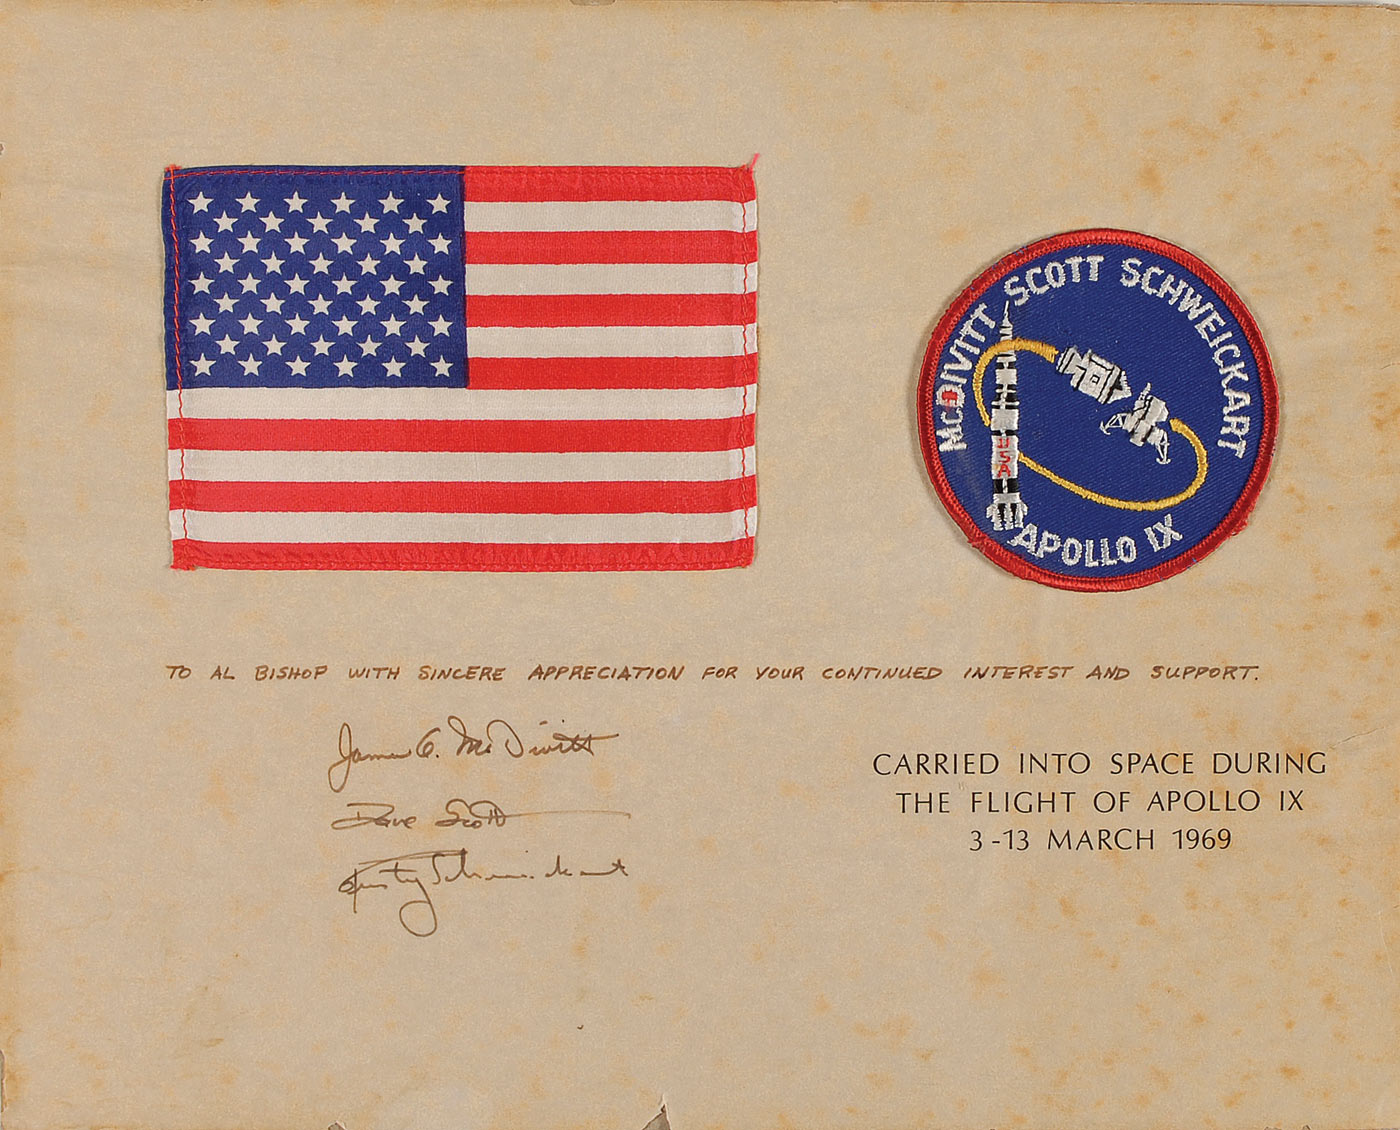 McDIVITT SCOTT SCHWEICKART
USA
APOLLO IX
TO AL BISHOP WITH SINCERE APPRECIATION FOR YOUR CONTINUED INTEREST AND SUPPORT.
James C. McDivitt
Dave Scott
Rusty Schweickart
CARRIED INTO SPACE DURING
THE FLIGHT OF APOLLO IX
3-13 MARCH 1969